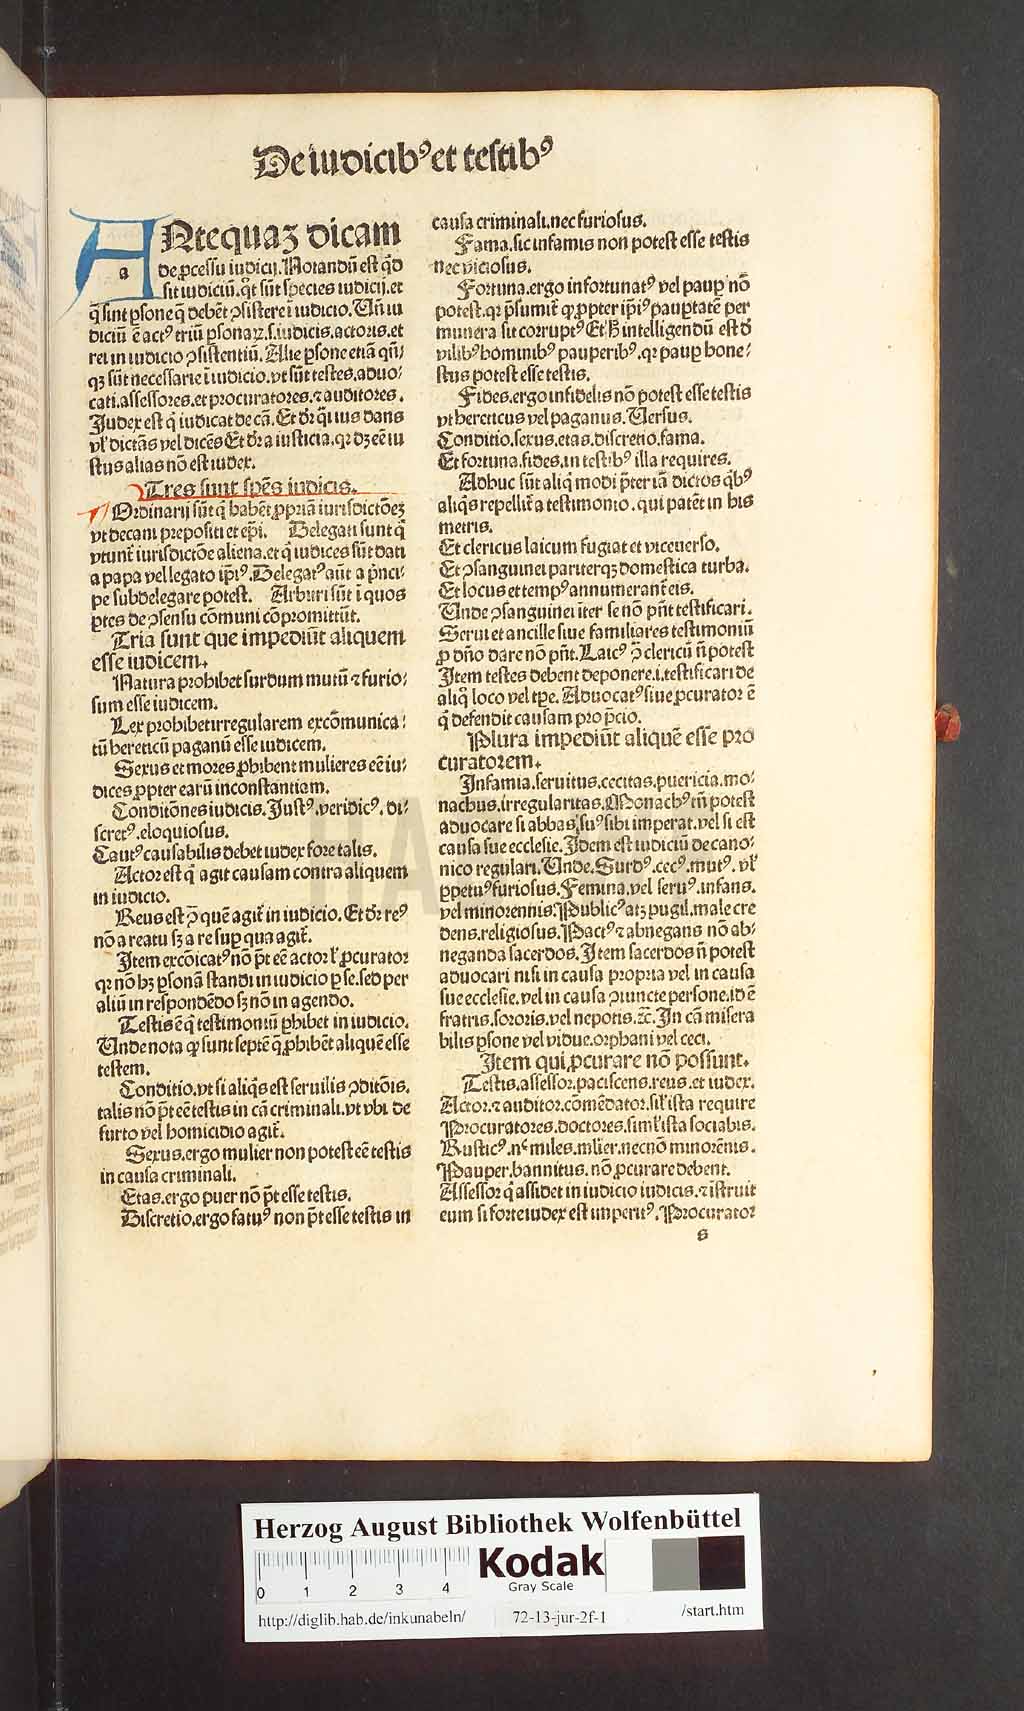 De iudicibꝰ et testibꝰ
ANtequaꝫ dicam
a
de ꝓcessu iudicij. Notandū est qͦd
sit iudiciū. qͦt sūt species iudicij. et
q̄ sint ꝑsone q̄ debēt ꝯsistere ī iudicio. Vn̄ iu
diciū ē actꝰ triū ꝑsonaꝝ. s. iudicis. actoris. et
rei in iudicio ꝯsistentiū. Alie ꝑsone etiā qn̄⸗
qꝫ sūt necessarie ī iudicio. vt sūt testes. aduo⸗
cati. assessores. et procuratores. ⁊ auditores.
Judex est q̇ iudicat de cā. Et dr̄ q̄i ius dans
vl' dictās vel dicēs Et dr̄ a iusticia. qꝛ dꝫ eē iu
stus alias nō est iudex.
Tres sunt spēs iudicis.
Ordinarij sūt q̇ habēt ꝓpriā iurisdictōeꝫ
vt decani prepositi et epī. Delegati sunt q̇
vtunt̄ iurisdictōe aliena. et q̇ iudices sūt dati
a papa vel legato ip̄iꝰ. Delegatꝰ aūt a p̄nci⸗
pe subdelegare potest. Arbitri sūt ī quos
ꝑtes de ꝯsensu cōmuni cōpromittūt.
Tria sunt que impediūt aliquem
esse iudicem.
Natura prohibet surdum mutū ⁊ furio⸗
sum esse iudicem.
Lex prohibet irregularem excōmunica⸗
tū hereticū paganū esse iudicem.
Sexus et mores ꝓhibent mulieres eē iu⸗
dices ꝓpter earū inconstantiam.
Conditōnes iudicis. Justꝰ. veridicꝰ. di⸗
scretꝰ. eloquiosus.
Cautꝰ causabilis debet iudex fore talis.
Actor est q̇ agit causam contra aliquem
in iudicio.
Reus est ꝯ̄ quē agit̄ in iudicio. Et dr̄ reꝰ
nō a reatu sꝫ a re suꝑ qua agit̄.
Item excōicatꝰ nō p̄t eē actor l' ꝓcurator
qꝛ nō hꝫ ꝑsonā standi in iudicio ꝑ se. sed per
aliū in respondēdo sꝫ nō in agendo.
Testis ē q̇ testimoniū ꝓhibet in iudicio.
Vnde nota ꝙ sunt septē q̄ ꝓhibēt aliquē esse
testem.
Conditio. vt si aliq̇s est seruilis ꝯditōis.
talis nō p̄t eē testis in cā criminali. vt vbi de
furto vel homicidio agit̄.
Sexus. ergo mulier non potest eē testis
in causa criminali.
Etas. ergo puer nō p̄t esse testis.
Discretio. ergo fatuꝰ non p̄t esse testis in
causa criminali. nec furiosus.
Fama. sic infamis non potest esse testis
nec viciosus.
Fortuna. ergo infortunatꝰ vel pauꝑ nō
potest. qꝛ p̄sumit̄ ꝙ ꝓpter ip̄iꝰ pauptatē per
munera sit corruptꝰ Et h̄ intelligendū est d̄
vilibꝰ hominibꝰ pauperibꝰ. qꝛ pauꝑ hone⸗
stus potest esse testis.
Fides. ergo infidelis nō potest esse testis
vt hereticus vel paganus. Versus.
Conditio. sexus. etas. discretio. fama.
Et fortuna. fides. in testibꝰ illa requires.
Adhuc sūt aliq̇ modi p̄ter iā dictos q̇bꝰ
aliq̇s repellit̄ a testimonio. qui patēt in his
metris.
Et clericus laicum fugiat et viceuerso.
Et ꝯsanguinei pariterqꝫ domestica turba.
Et locus et tempꝰ annumerant̄ eis.
Vnde ꝯsanguinei īter se nō pn̄t testificari.
Serui et ancille siue familiares testimoniū
ꝓ dn̄o dare nō pn̄t. Laicꝰ ꝯ̄ clericū n̄ potest
Item testes debent deponere. i. testificari de
aliq̇ loco vel tꝑe. Aduocatꝰ siue ꝓcurator ē
q̇ defendit causam pro p̄cio.
Plura impediūt aliquē esse pro
curatorem.
Infamia. seruitus. cecitas. puericia. mo⸗
nachus. irregularitas. Monachꝰ tn̄ potest
aduocare si abbas suꝰ sibi imperat. vel si est
causa sue ecclesie. Idem est iudiciū de cano⸗
nico regulari. Vnde. Surdꝰ. cecꝰ. mutꝰ. vl'
ꝑpetuꝰ furiosus. Femina. vel seruꝰ. infans.
vel minorennis. Publicꝰ atqꝫ pugil. male cre
dens. religiosus. Pactꝰ ⁊ abnegans nō ab⸗
neganda sacerdos. Item sacerdos n̄ potest
aduocari nisi in causa propria vel in causa
sue ecclesie. vel in causa ꝯiuncte persone. id ē
fratris. sororis. vel nepotis. ⁊c̄. In cā misera
bilis ꝑsone vel vidue. orphani vel ceci.
Item qui ꝓcurare nō possunt.
Testis. assessor. paciscens. reus. et iudex.
Actor. ⁊ auditor. cōmēdator. sil' ista require
Procuratores. doctores. simil' ista sociabis.
Rusticꝰ. nᶜ miles. ml̄ier. necnō minorēnis.
Pauper. bannitus. nō ꝓcurare debent.
Assessor q̇ assidet in iudicio iudicis. ⁊ īstruit
eum si forte iudex est imperitꝰ. Procurator
s
Herzog August Bibliothek Wolfenbüttel
0 1 2 3 4
Kodak
Gray Scale
http://diglib.hab.de/inkunabeln/ 72-13-jur-2f-1 /start.htm
HAB